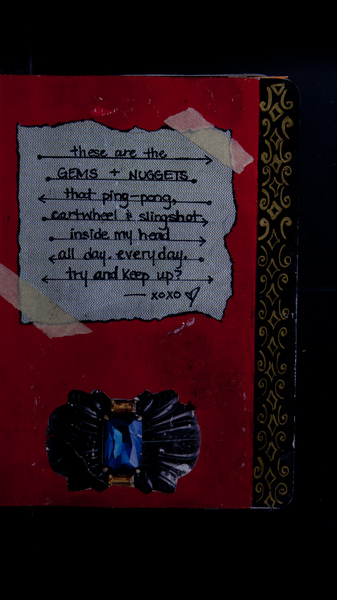 these are the
GEMS + NUGGETS
that ping-pong,
cartwheel & slingshot
inside my head
all day. everyday.
try and keep up?
— xoxo